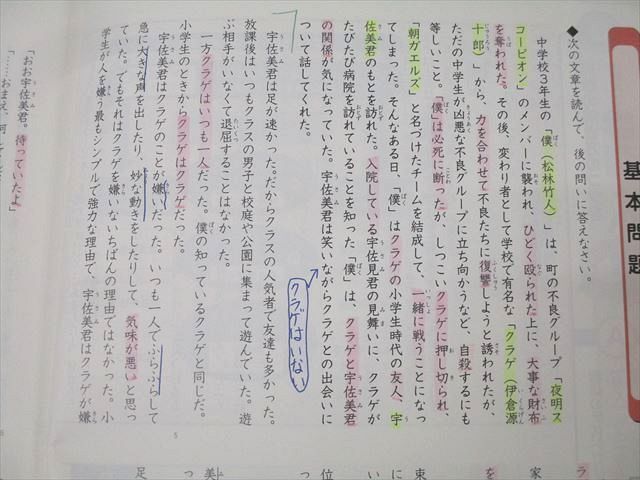 基本問題
◆次の文章を読んで、後の問いに答えなさい。
中学校3年生の「僕（松林竹人）」は、町の不良グループ「夜明ス
コーピオン」のメンバーに襲われ、ひどく殴られた上に、大事な財布
を奪われた。その後、変わり者として学校で有名な「クラゲ（伊倉源
十郎）」から、力を合わせて不良たちに復讐しようと誘われたが、
ただの中学生が凶悪な不良グループに立ち向かうなど、自殺するにも
等しいこと。「僕」は必死に断ったが、しつこいクラゲに押し切られ、
「朝ガエルズ」と名づけたチームを結成して、一緒に戦うことになっ
てしまった。そんなある日、「僕」はクラゲの小学生時代の友人、宇
佐美君のもとを訪れた。入院している宇佐見君の見舞いに、クラゲが
たびたび病院を訪れていることを知った「僕」は、クラゲと宇佐美君
の関係が気になっていた。宇佐美君は笑いながらクラゲとの出会いに
ついて話してくれた。
クラゲはいない
宇佐美君は足が速かった。だからクラスの人気者で友達も多かった。
放課後はいつもクラスの男子と校庭や公園に集まって遊んでいた。遊
ぶ相手がいなくて退屈することはなかった。
一方クラゲはいつも一人だった。僕の知っているクラゲと同じだ。
小学生のときからクラゲはクラゲだった。
宇佐美君はクラゲのことが嫌いだった。いつも一人でふらふらして
急に大きな声を出したり、妙な動きをしたりして、気味が悪いと思っ
ていた。でもそれはクラゲを嫌いないちばんの理由ではなかった。小
学生が人を嫌う最もシンプルで強力な理由で、宇佐美君はクラゲが嫌
5
「おお宇佐美君。待っていたよ」